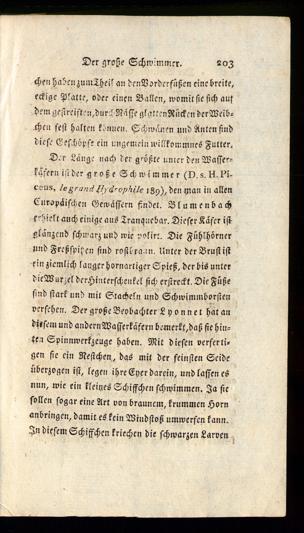 Der große Schwimmer. 203
chen haben zum Theil an den Vorderfüßen eine breite,
eckige Platte, oder einen Ballen, womit sie sich auf
dem gestreiften, durch Nässe glatten Rücken der Weib-
chen fest halten können. Schwänen und Anten sind
diese Geschöpfe ein ungemein willkommnes Futter.
Der Länge nach der größte unter den Wasser-
käfern ist der große Schwimmer (D. s. H. Pi-
ceus, le grand Hydrophile 189), den man in allen
Europäischen Gewässern findet. Blumenbach
erhielt auch einige aus Tranquebar. Dieser Käfer ist
glänzend schwarz und wie polirt. Die Fühlhörner
und Freßspitzen sind rostbraun. Unter der Brust ist
ein ziemlich langer hornartiger Spieß, der bis unter
die Wurzel der Hinterschenkel sich erstreckt. Die Füße
sind stark und mit Stacheln und Schwimmborsten
versehen. Der große Beobachter Lyonnet hat an
diesem und andern Wasserkäfern bemerkt, daß sie hin-
ten Spinnwerkzeuge haben. Mit diesen verferti-
gen sie ein Nestchen, das mit der feinsten Seide
überzogen ist, legen ihre Eyer darein, und lassen es
nun, wie ein kleines Schiffchen schwimmen. Ja sie
sollen sogar eine Art von braunem, krummen Horn
anbringen, damit es kein Windstoß umwerfen kann.
In diesem Schiffchen kriechen die schwarzen Larven